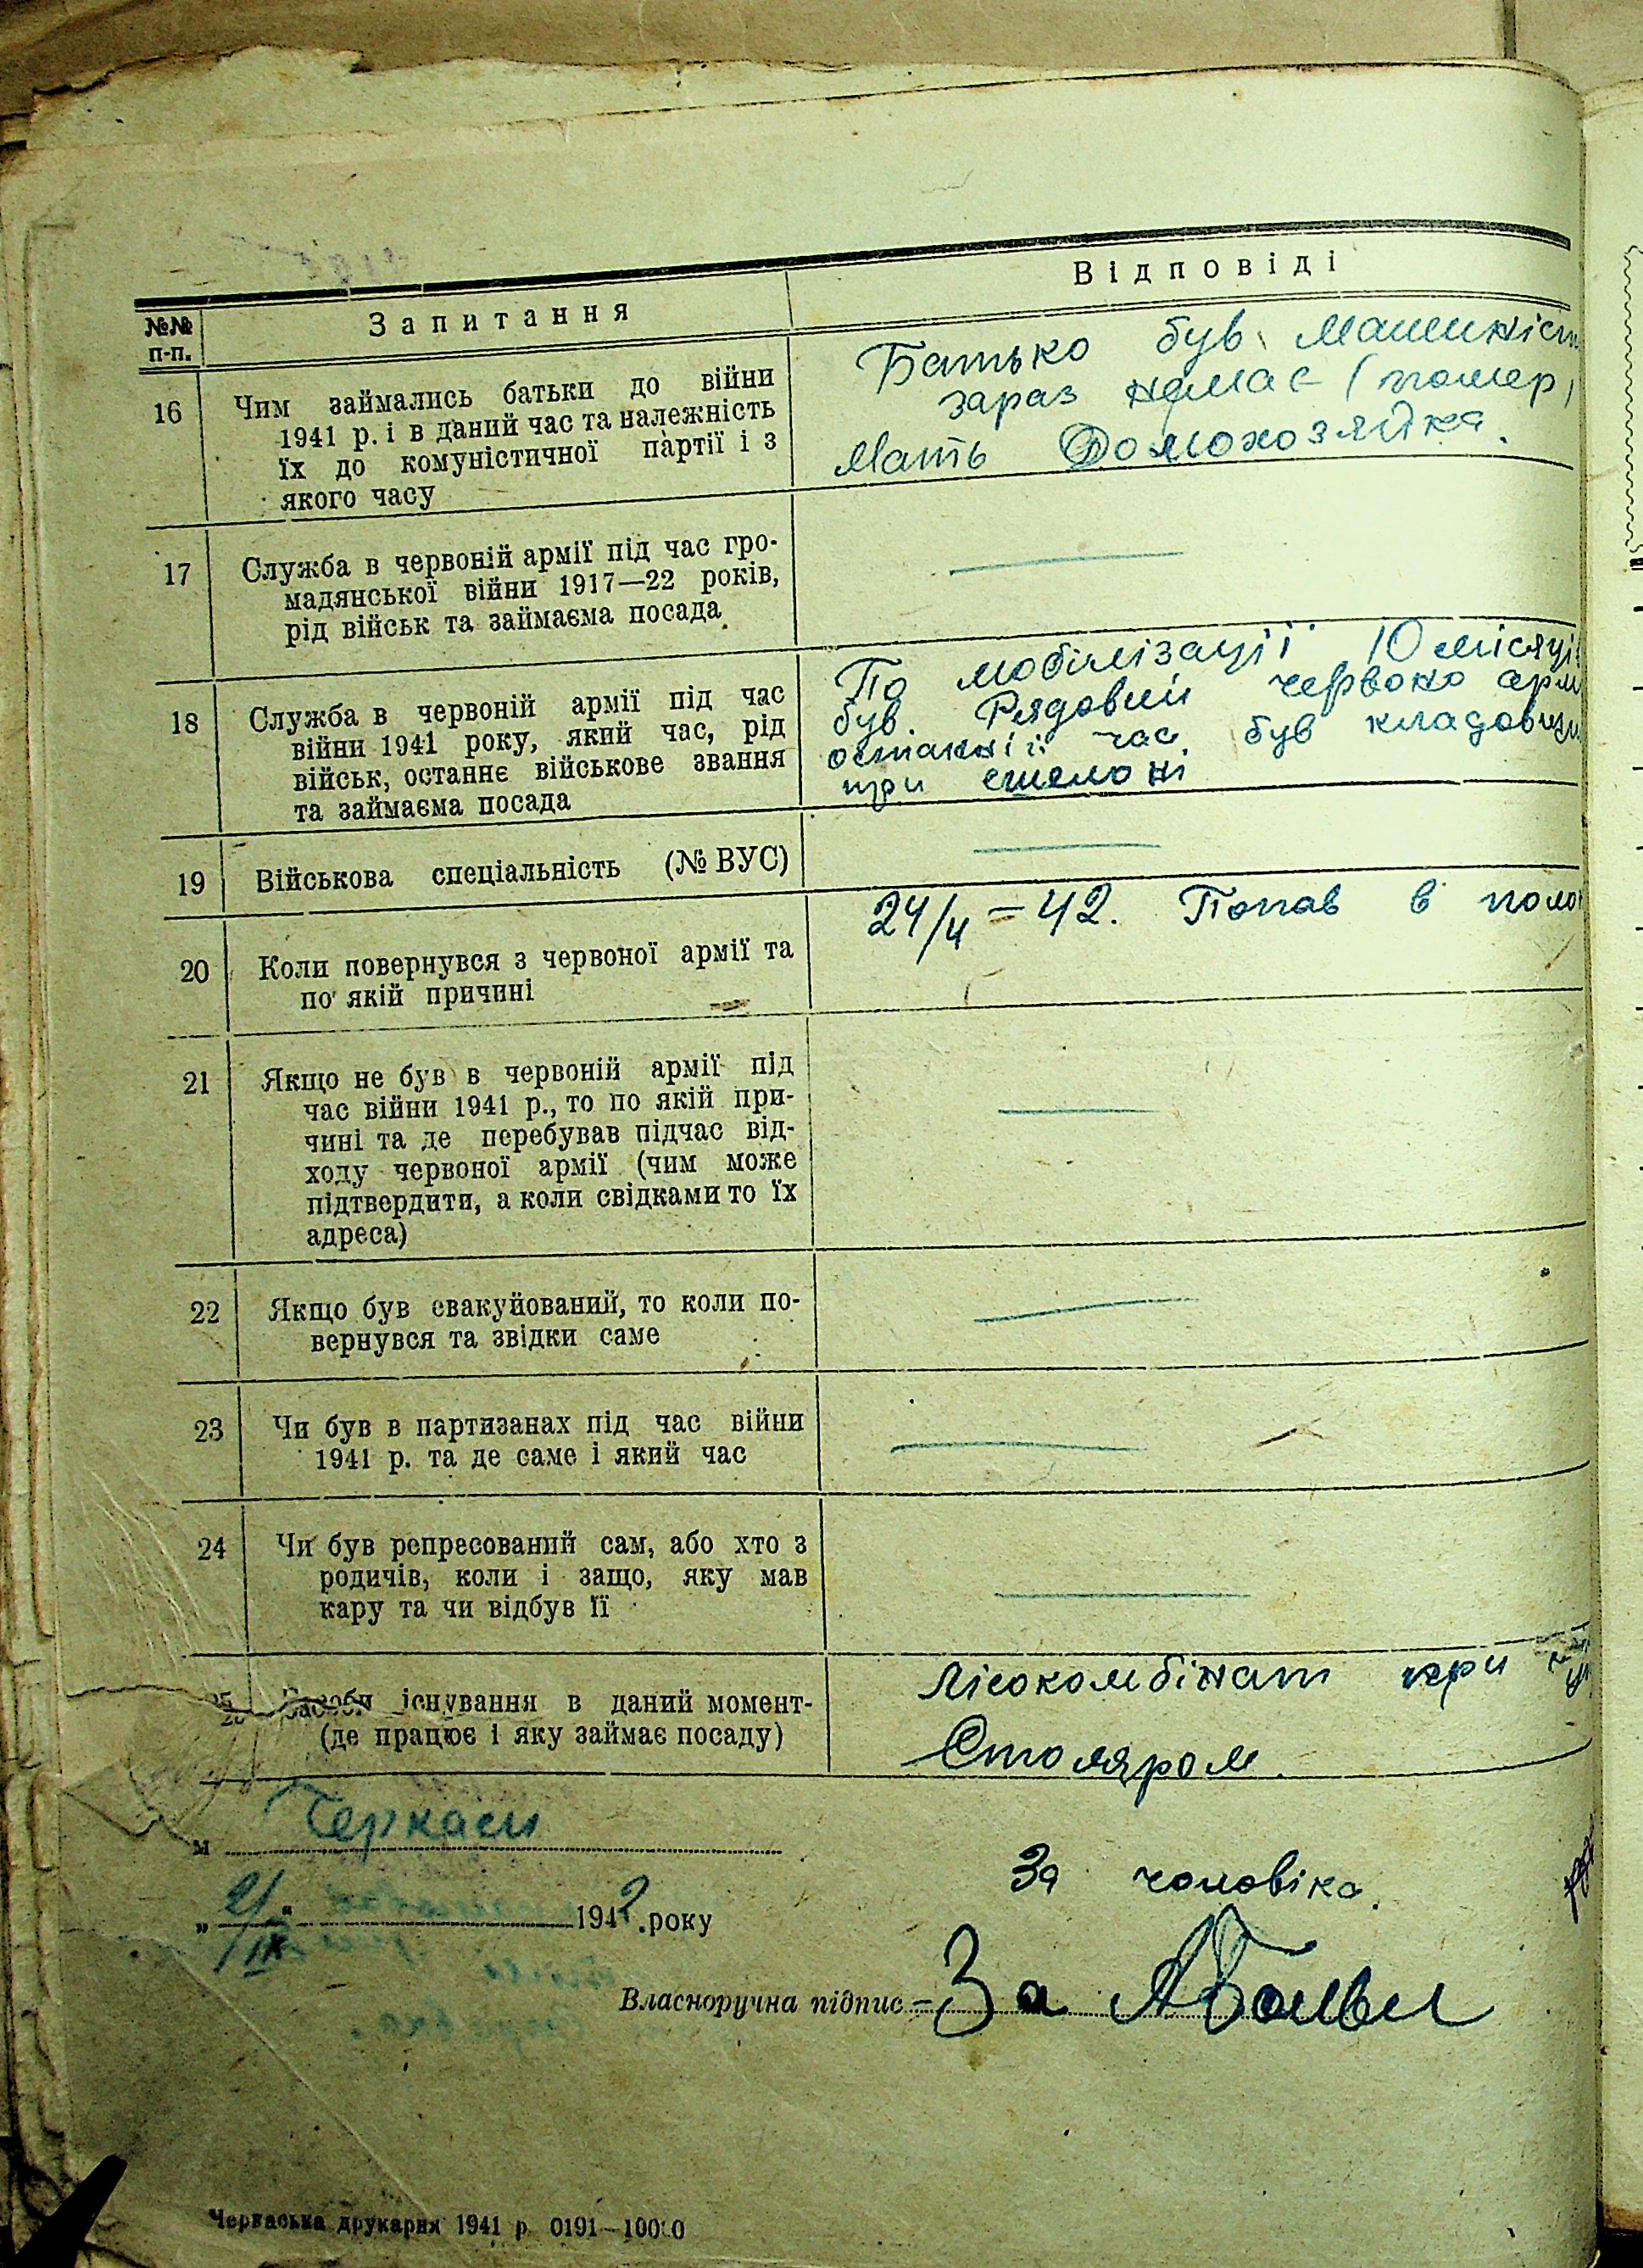 №№ п-п.
Запитання
Відповіді
16
Чим займались батьки до війни
1941 р. і в даний час та належність
їх до комуністичної партії і з
якого часу
Батько був Машиніст
зараз немає (помер)
Мать Домохозяйка.
17
Служба в червоній армії під час гро-
мадянської війни 1917—22 років,
рід військ та займаєма посада
18
Служба в червоній армії під час
війни 1941 року, який час, рід
військ, останнє військове звання
та займаєма посада
По мобілізації 10 місяці
був Рядовий червоно арм
останній час був кладовщи
при
19
Військова спеціальність (№ ВУС)
20
Коли повернувся з червоної армії та
по якій причині
24/4 – 42. Попав в поло
21
Якщо не був в червоній армії під
час війни 1941 р., то по якій при-
чині та де перебував підчас від-
ходу червоної армії (чим може
підтвердити, а коли свідками то їх
адреса)
22
Якщо був евакуйований, то коли по-
вернувся та звідки саме
23
Чи був в партизанах під час війни
1941 р. та де саме і який час
24
Чи був репресований сам, або хто з
родичів, коли і защо, яку мав
кару та чи відбув її
25
Засоби існування в даний момент-
(де працює і яку займає посаду)
Лісокомбінат при
Столяром.
м Черкаси
„21/IX“ 1942 року
За чоловіка.
Власноручна підпис – За
Черкаська друкарня 1941 р. 0191—10000